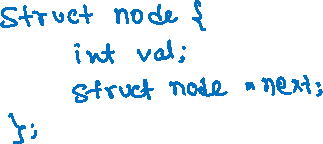 struct node {
int val;
struct node *next;
};